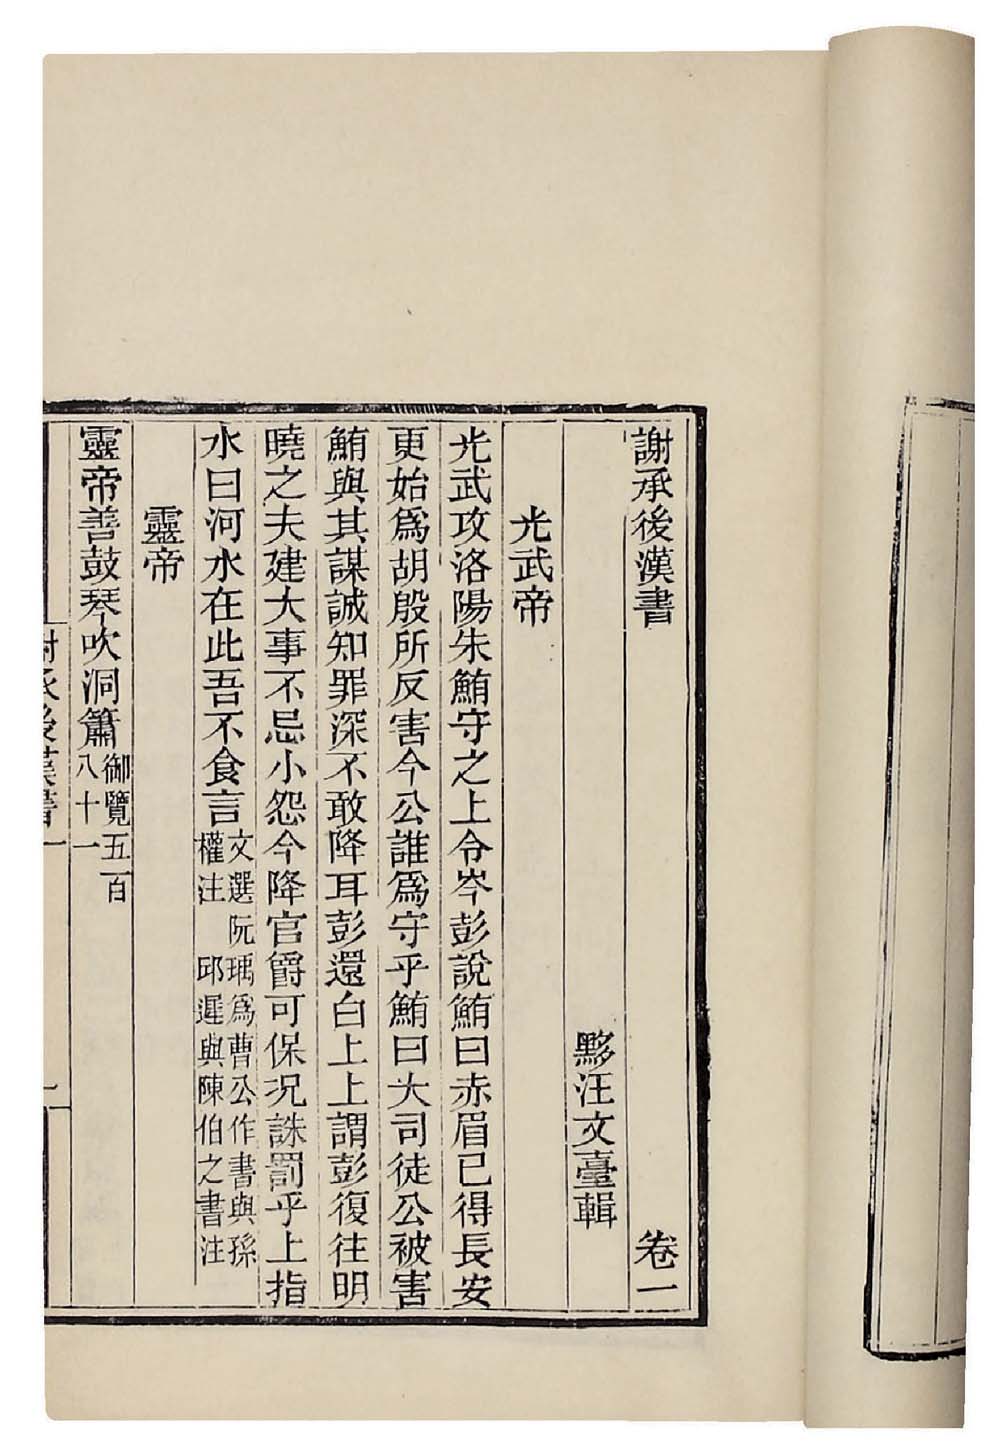 謝承後漢書 卷一
黟汪文臺輯
光武帝
光武攻洛陽朱鮪守之上令岑彭說鮪曰赤眉已得長安
更始爲胡殷所反害今公誰爲守乎鮪曰大司徒公被害
鮪與其謀誠知罪深不敢降耳彭還白上上謂彭復往明
曉之夫建大事不忌小怨今降官爵可保况誅罰乎上指
水曰河水在此吾不食言
文選阮瑀爲曹公作書與孫
權注 邱遲與陳伯之書注
靈帝
靈帝善鼓琴吹洞簫
御覽五百
八十一
謝承後漢書一
一